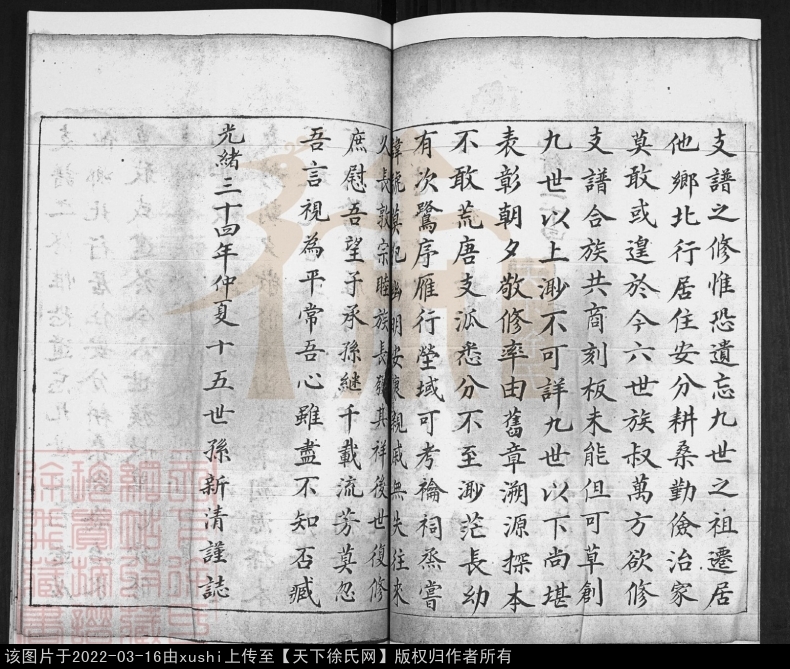 支譜之修惟恐遺忘九世之祖遷居
他鄉北行居住安分耕桑勤儉治家
莫敢或遑於今六世族叔萬方欲修
支譜合族共商刻板未能但可草創
九世以上渺不可詳九世以下尚堪
表彰朝夕敬修率由舊章溯源探本
不敢荒唐支派悉分不至渺茫長幼
有次鷺序雁行塋域可考禴祠烝嘗
明安 親戚無失往來
久長敦宗睦族長發其祥後世復修
庶慰吾望子承孫繼千載流芳莫忽
吾言視為平常吾心雖盡不知否臧
光緒三十四年仲夏十五世孫新清謹誌
该图片于2022-03-16由xushi上传至【天下徐氏网】版权归作者所有